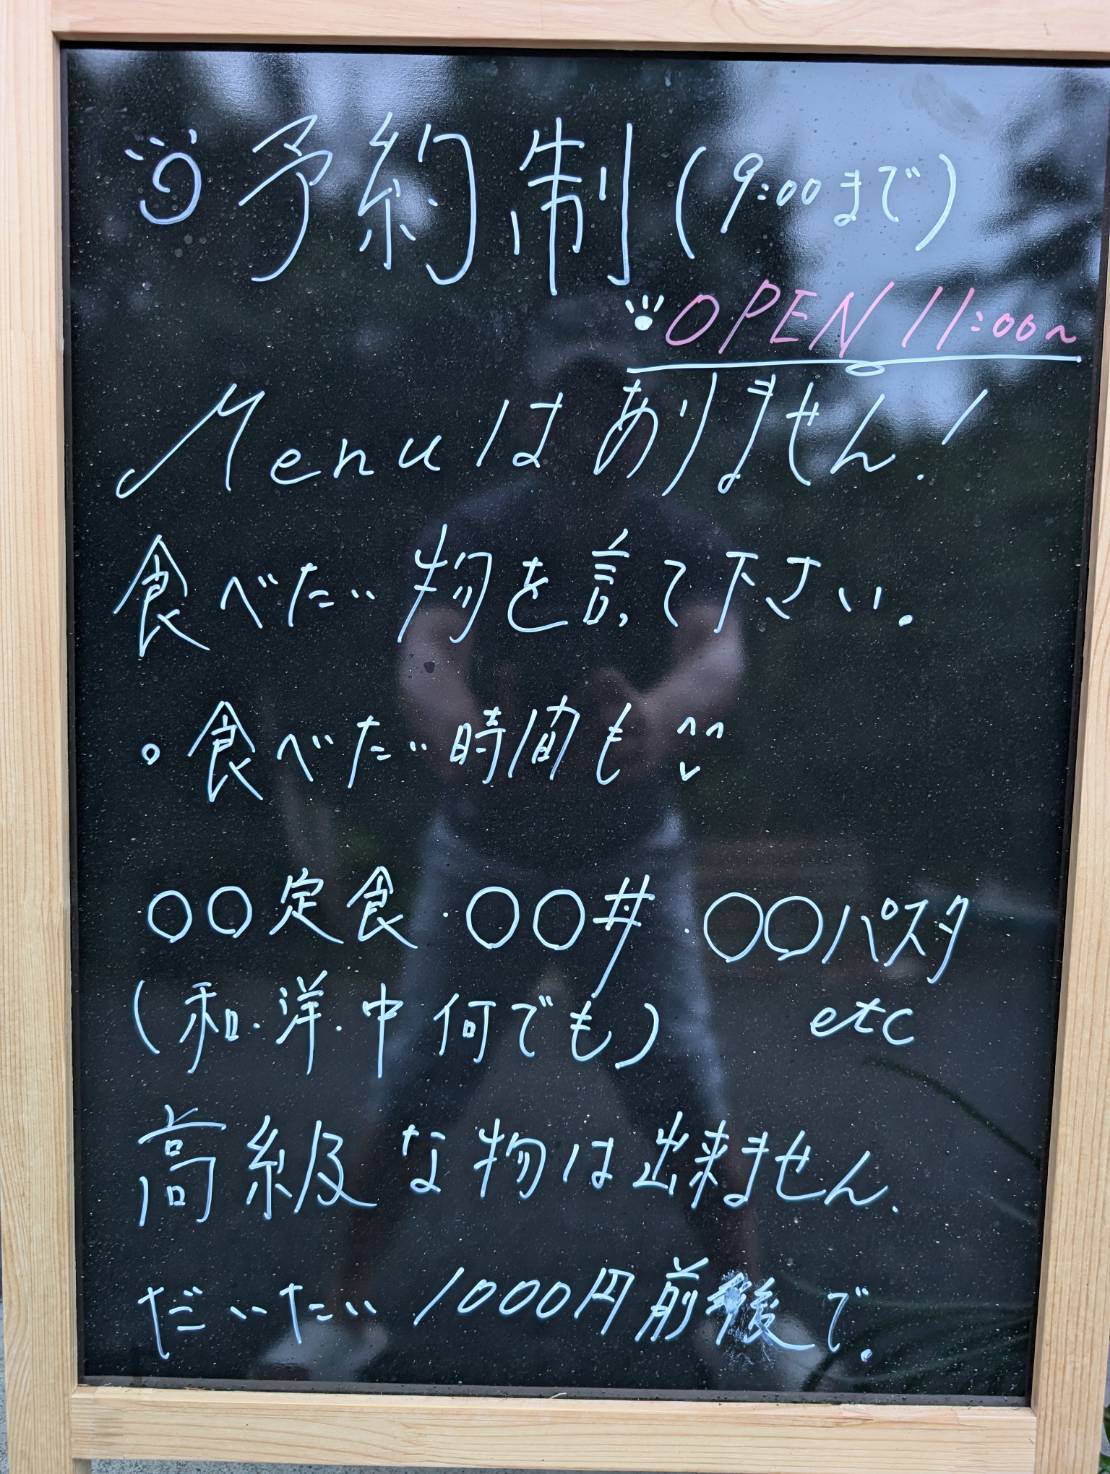 予約制(9:00まで)
OPEN 11:00~
Menuはありません!
食べたい物を言って下さい.
。食べたい時間も
○○定食・○○丼・○○パスタ
(和・洋・中 何でも) etc
高級な物は出来ません.
だいたい 1000円前後で.